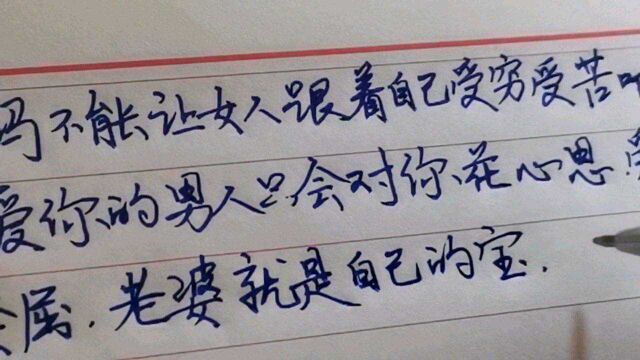 不能让女人跟着自己受穷受苦叫
爱你的男人只会对你花心思
屈.老婆就是自己的宝.